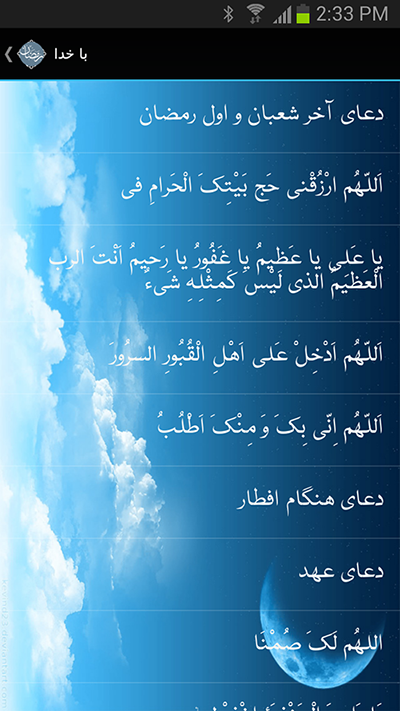 2:33 PM
با خدا
دعای آخر شعبان و اول رمضان
اَللّهُم ارْزُقْنی حَج بَیْتِکَ الْحَرامِ فی
یا عَلی یا عَظیمُ یا غَفُورُ یا رَحیمُ اَنْتَ الرب
الْعَظیمُ الذی لَیْسَ کَمِثْلِهِ شَیءٌ
اَللّهُم اَدْخِلْ عَلی اَهْلِ الْقُبُورِ السرُورَ
اَللّهُم اِنّی بِکَ وَ مِنْکَ اَطْلُبُ
دعای هنگام افطار
دعای عهد
اللهُم لَکَ صُمْنَا